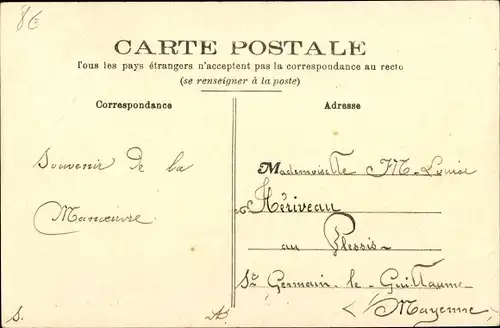 86
CARTE POSTALE
Tous les pays étrangers n'acceptent pas la correspondance au recto
(se renseigner à la poste)
Correspondance
Souvenir de la
Manœuvre
S.
Adresse
Mademoiselle M. Louise
Hériveau
au Plessis
St Germain-le-Guillaume
Mayenne